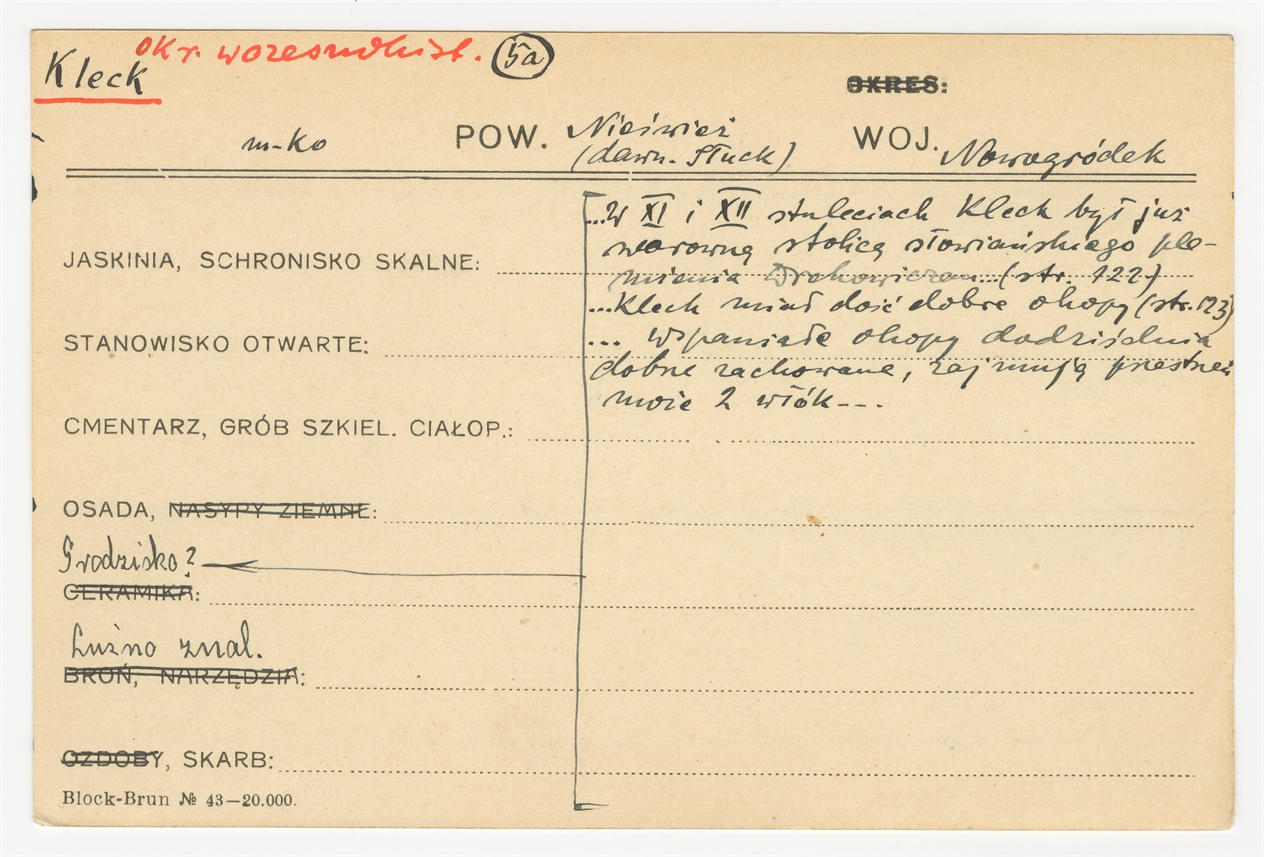 okr. wczesnohist. 5a
Kleck
OKRES:
m-ko POW. Nieśwież WOJ. Nowogródek
(dawn. Słuck)
...W XI i XII stuleciach Kleck był już
warowną stolicą słowiańskiego ple-
JASKINIA, SCHRONISKO SKALNE:
mienia Drehowiczan...(str. 122)
...Kleck miał dość dobre okopy (str. 123)
STANOWISKO OTWARTE:
... Wspaniałe okopy dodziśdnia
dobrze zachowane, zajmują przestrzeń
może 2 włók---
CMENTARZ, GRÓB SZKIEL. CIAŁOP.:
OSADA, NASYPY ZIEMNE:
Grodzisko?
CERAMIKA:
Luźno znal.
BROŃ, NARZĘDZIA:
OZDOBY, SKARB:
Block-Brun № 43—20.000.